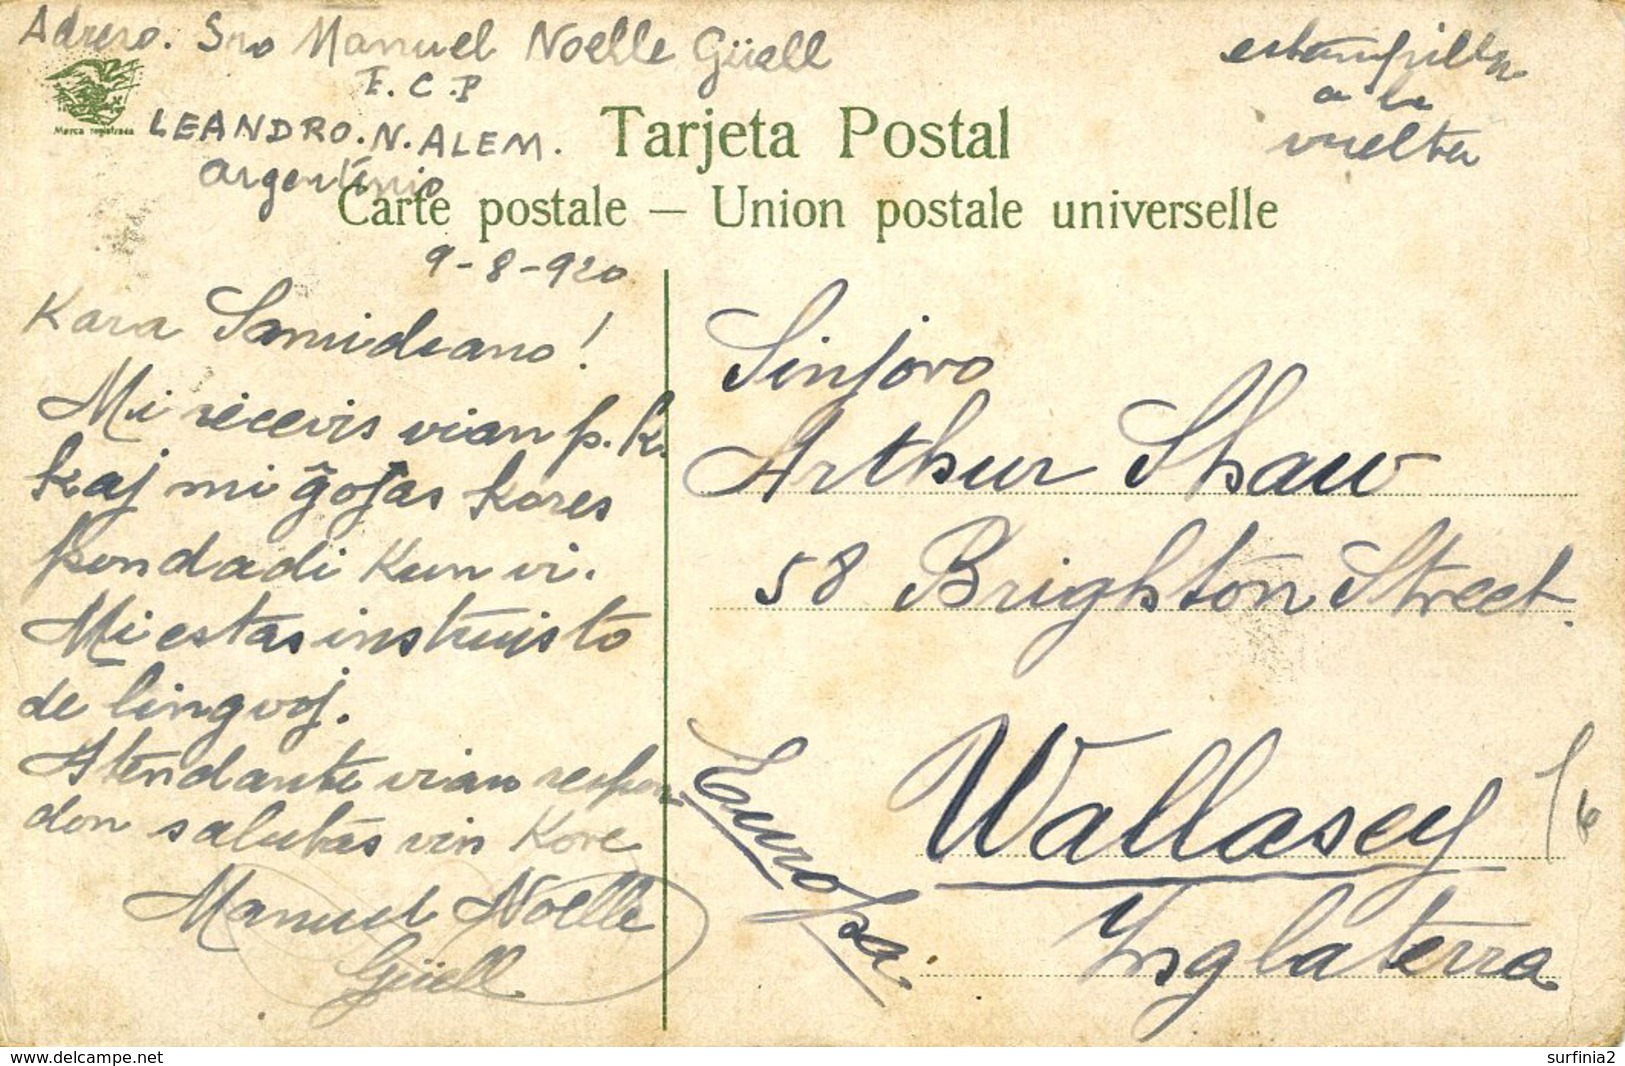 Adreso. Sro Manuel Noelle Güell
F.C.P
LEANDRO.N.ALEM.
Argentinio
Marca registrada
estampilla
a la
vuelta
Tarjeta Postal
Carte postale — Union postale universelle
9-8-920
Kara Samideano!
Mi ricevis vian p.k.
kaj mi ĝojas kores
pondadi kun vi.
Mi estas instruisto
de lingvoj.
Atendante vian respon
don salutas vin kore
Manuel Noelle
Güell
Sinjoro
Arthur Shaw
58 Brighton Street.
Wallasey
Inglaterra
Europa.
www.delcampe.net
surfinia2